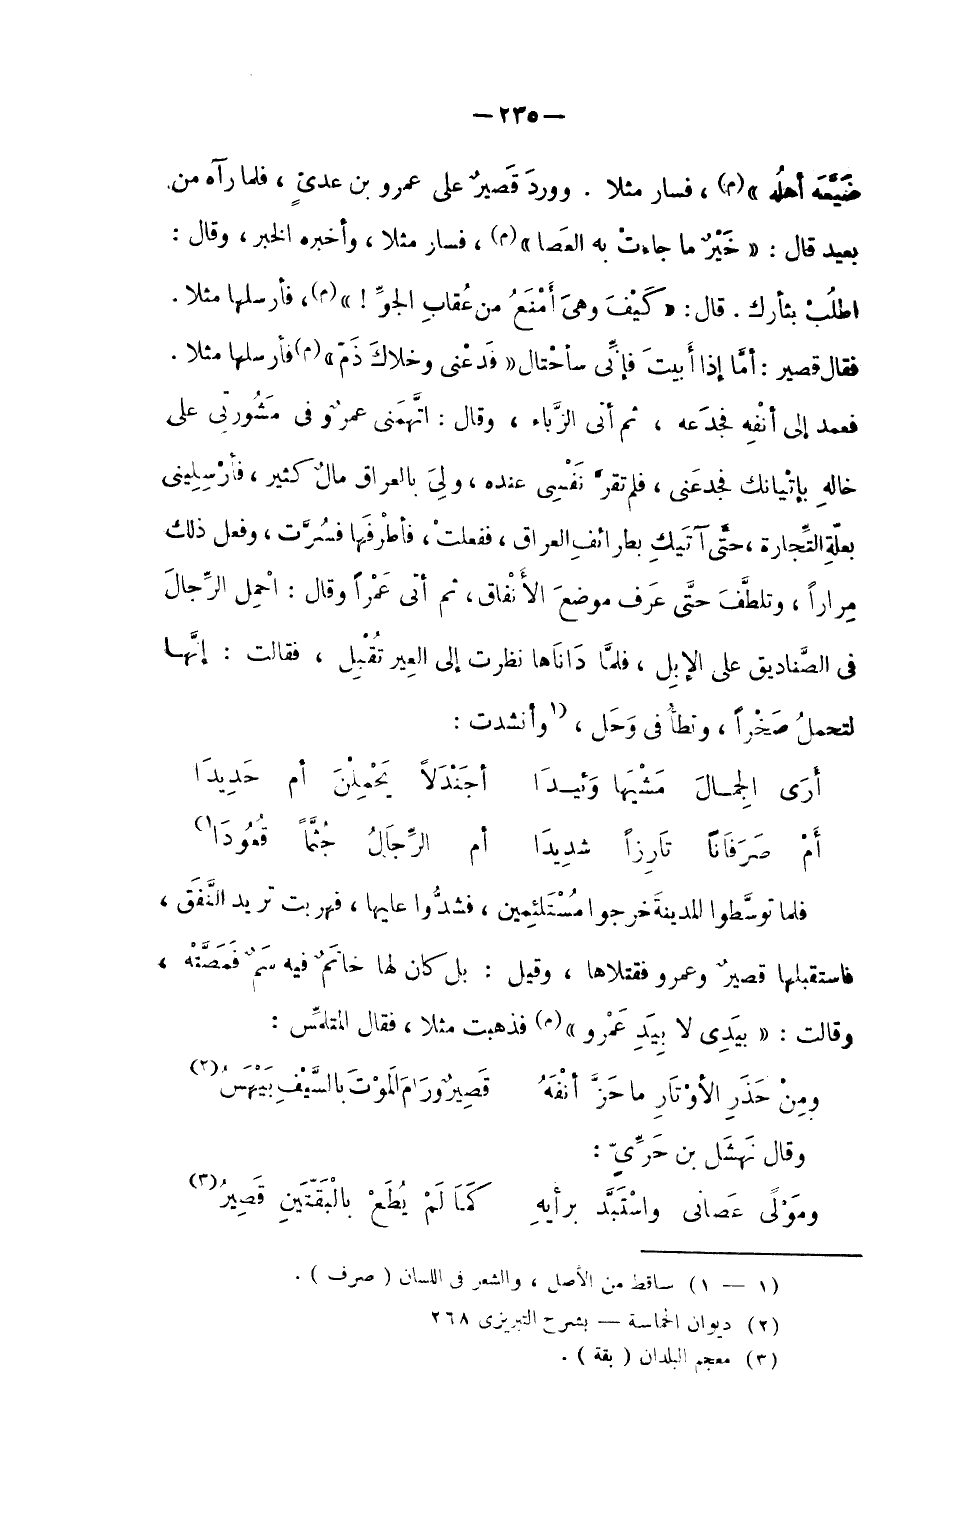 — ٢٣٥ —
ضَيَّعَه أهلُه » (م) ، فسار مثلا . ووردَ قَصيرٌ على عمرو بن عدىٍّ ، فلما رآه من
بعيد قال : « خَيْرٌ ما جاءتْ به العَصا » (م) ، فسار مثلا ، وأخبره الخبر ، وقال :
اطلُبْ بثأرك . قال : « كَيْفَ وهىَ أَمْنَعُ من عُقابِ الجوِّ ! » (م) ، فأرسلها مثلا .
فقال قصير : أمَّا إذا أبيتَ فإنِّى سأحْتال « فَدعْنى وخلاكَ ذَمّ » (م) فأرسلها مثلا .
فعمد إلى أنْفِه فجدَعه ، ثم أتى الزَّباء ، وقال : اتَّهمَنى عمرٌو فى مَشُورتى على
خالهِ بإتْيانك فجدعَنى ، فلم تقرّ نَفْسِى عنده ، ولِىَ بالعراق مالٌ كثير ، فأرْسِلِينى
بعلّةِ التِّجارة ، حتَّى آتيَكِ بطرائفِ العراق ، ففعلتْ ، فأطْرفَها فسُرَّت ، وفعل ذلك
مِراراً ، وتلطَّفَ حتَّى عرَف موضعَ الأَنْفاق ، ثم أتى عَمْراً وقال : احْمِل الرِّجالَ
فى الصَّناديق على الإبِل ، فلمَّا دَاناَها نظرت إلى العِير تُقْبِل ، فقالت : إنَّها
لتحملُ صَخْراً ، وتطأُ فى وَحَل ، (١ وأنشدت :
أَرَى الجِمالَ مَشْيُهَا وَئيدَا أجَنْدَلاً يَحْمِلْنَ أم حَديدَا
أَمْ صَرَفَانًا تَارِزاً شدِيدَا أم الرِّجَالُ جُثَّماً قُعُودَا ١)
فلما توسَّطوا المدينةَ خرجوا مُسْتَلئِمين ، فشدُّوا عليها ، فهربت تريد النَّفَق ،
فاستقبلها قصيرٌ وعمرو فقتلاها ، وقيل : بل كان لها خاتَمٌ فيه سَمٌّ فَمَصَّتْه ،
وقالت : « بيَدِى لا بِيَدِ عَمْرو » (م) فذهبت مثلا ، فقال المتلمِّس :
ومِنْ حَذَرِ الأوْتَارِ ما حَزَّ أنْفَهُ قَصِيرٌ ورَامَ المَوْتَ بالسَّيْفِ بَيْهَسُ (٢)
وقال نَهشَل بن حَرِّىّ :
ومَوْلًى عَصانى واسْتَبَدَّ برأيهِ كَمَا لَمْ يُطَعْ بالْبَقَّتَينِ قَصِيرُ (٣)
(١ — ١) ساقط من الأصل ، والشعر فى اللسان ( صرف ) .
(٢) ديوان الحماسة — بشرح التبريزى ٢٦٨
(٣) معجم البلدان ( بقة ) .